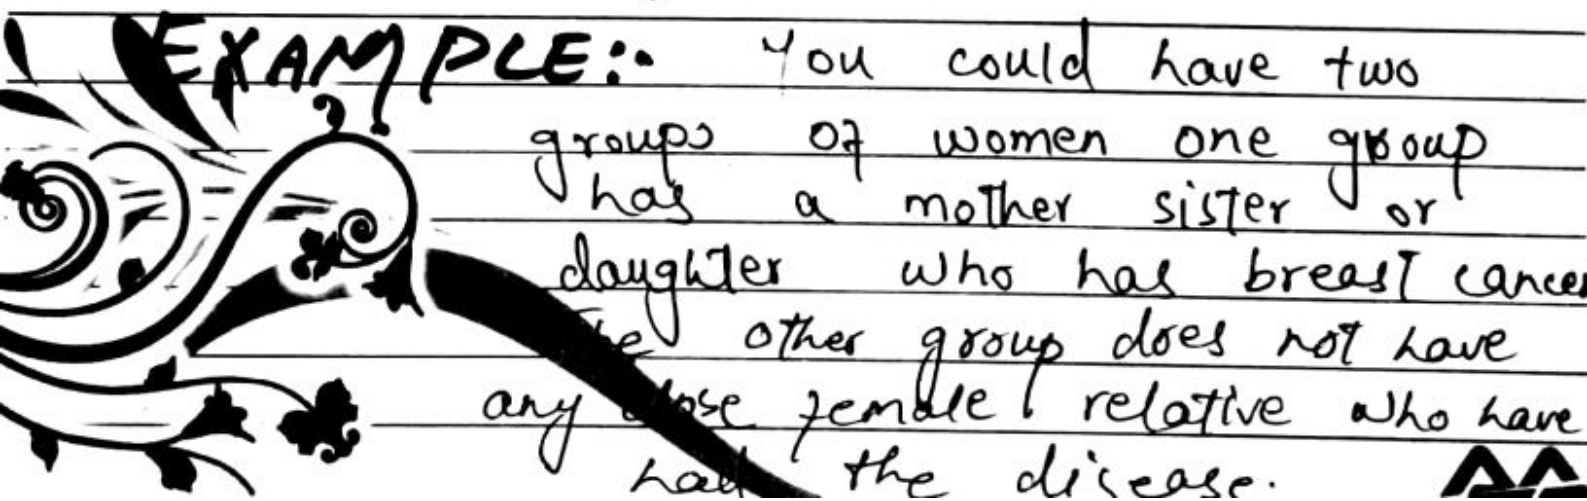 EXAMPLE:- You could have two
groups of women one group
has a mother sister or
daughter who has breast cancer
The other group does not have
any close female relative who have
had the disease.